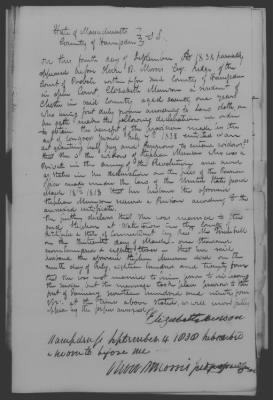 State of Massachusetts
County of Hampden } SS.
On this fourth day of September AD 1838 personally
appeared before Judge of the
Court of Probate within and for said County of Hampden
in open Court Elizabeth Munson a resident of
Chester in said County aged seventy one years
who being first duly sworn according to law doth on
her oath make the following declaration in order
to obtain the benefit of the provision made in the
act of Congress passed July 7, 1838 entitled "an
act granting half pay and pensions to certain widows"
that she is the widow of Stephen Munson who was a
Private in the Army of the Revolution and served
as stated in his declaration on the files of the
made under the law of the United States passed
March 18th 1818 that her husband the aforesaid
Stephen Munson received a Pension according to the
She further declares that she was married to the
said Stephen at Watertown in the County of
Litchfield & State of Connecticut by
on the thirteenth day of March one thousand
that her said
husband the aforesaid Stephen Munson died on the
ninth day of July, eighteen hundred and twenty four
that she was not married to him prior to his leaving
the service but the marriage took place previous to the
first of January seventeen hundred and ninety four
viz. at the time above stated,
Elizabeth Munson
Hampden ss September 4 1838 subscribed
& sworn to before me